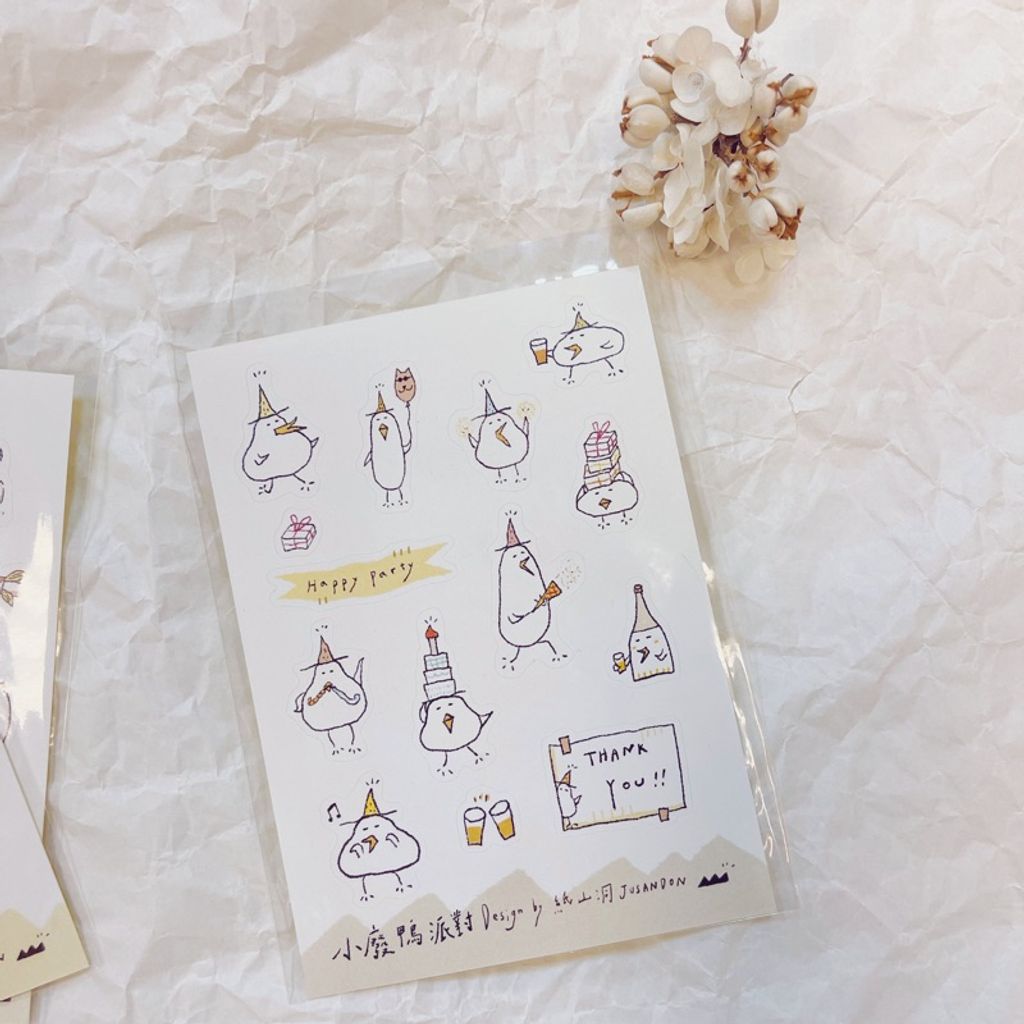 Happy party
THANK
YOU!!
小廢鴨派對 Design by 紙山洞 JUSANDON